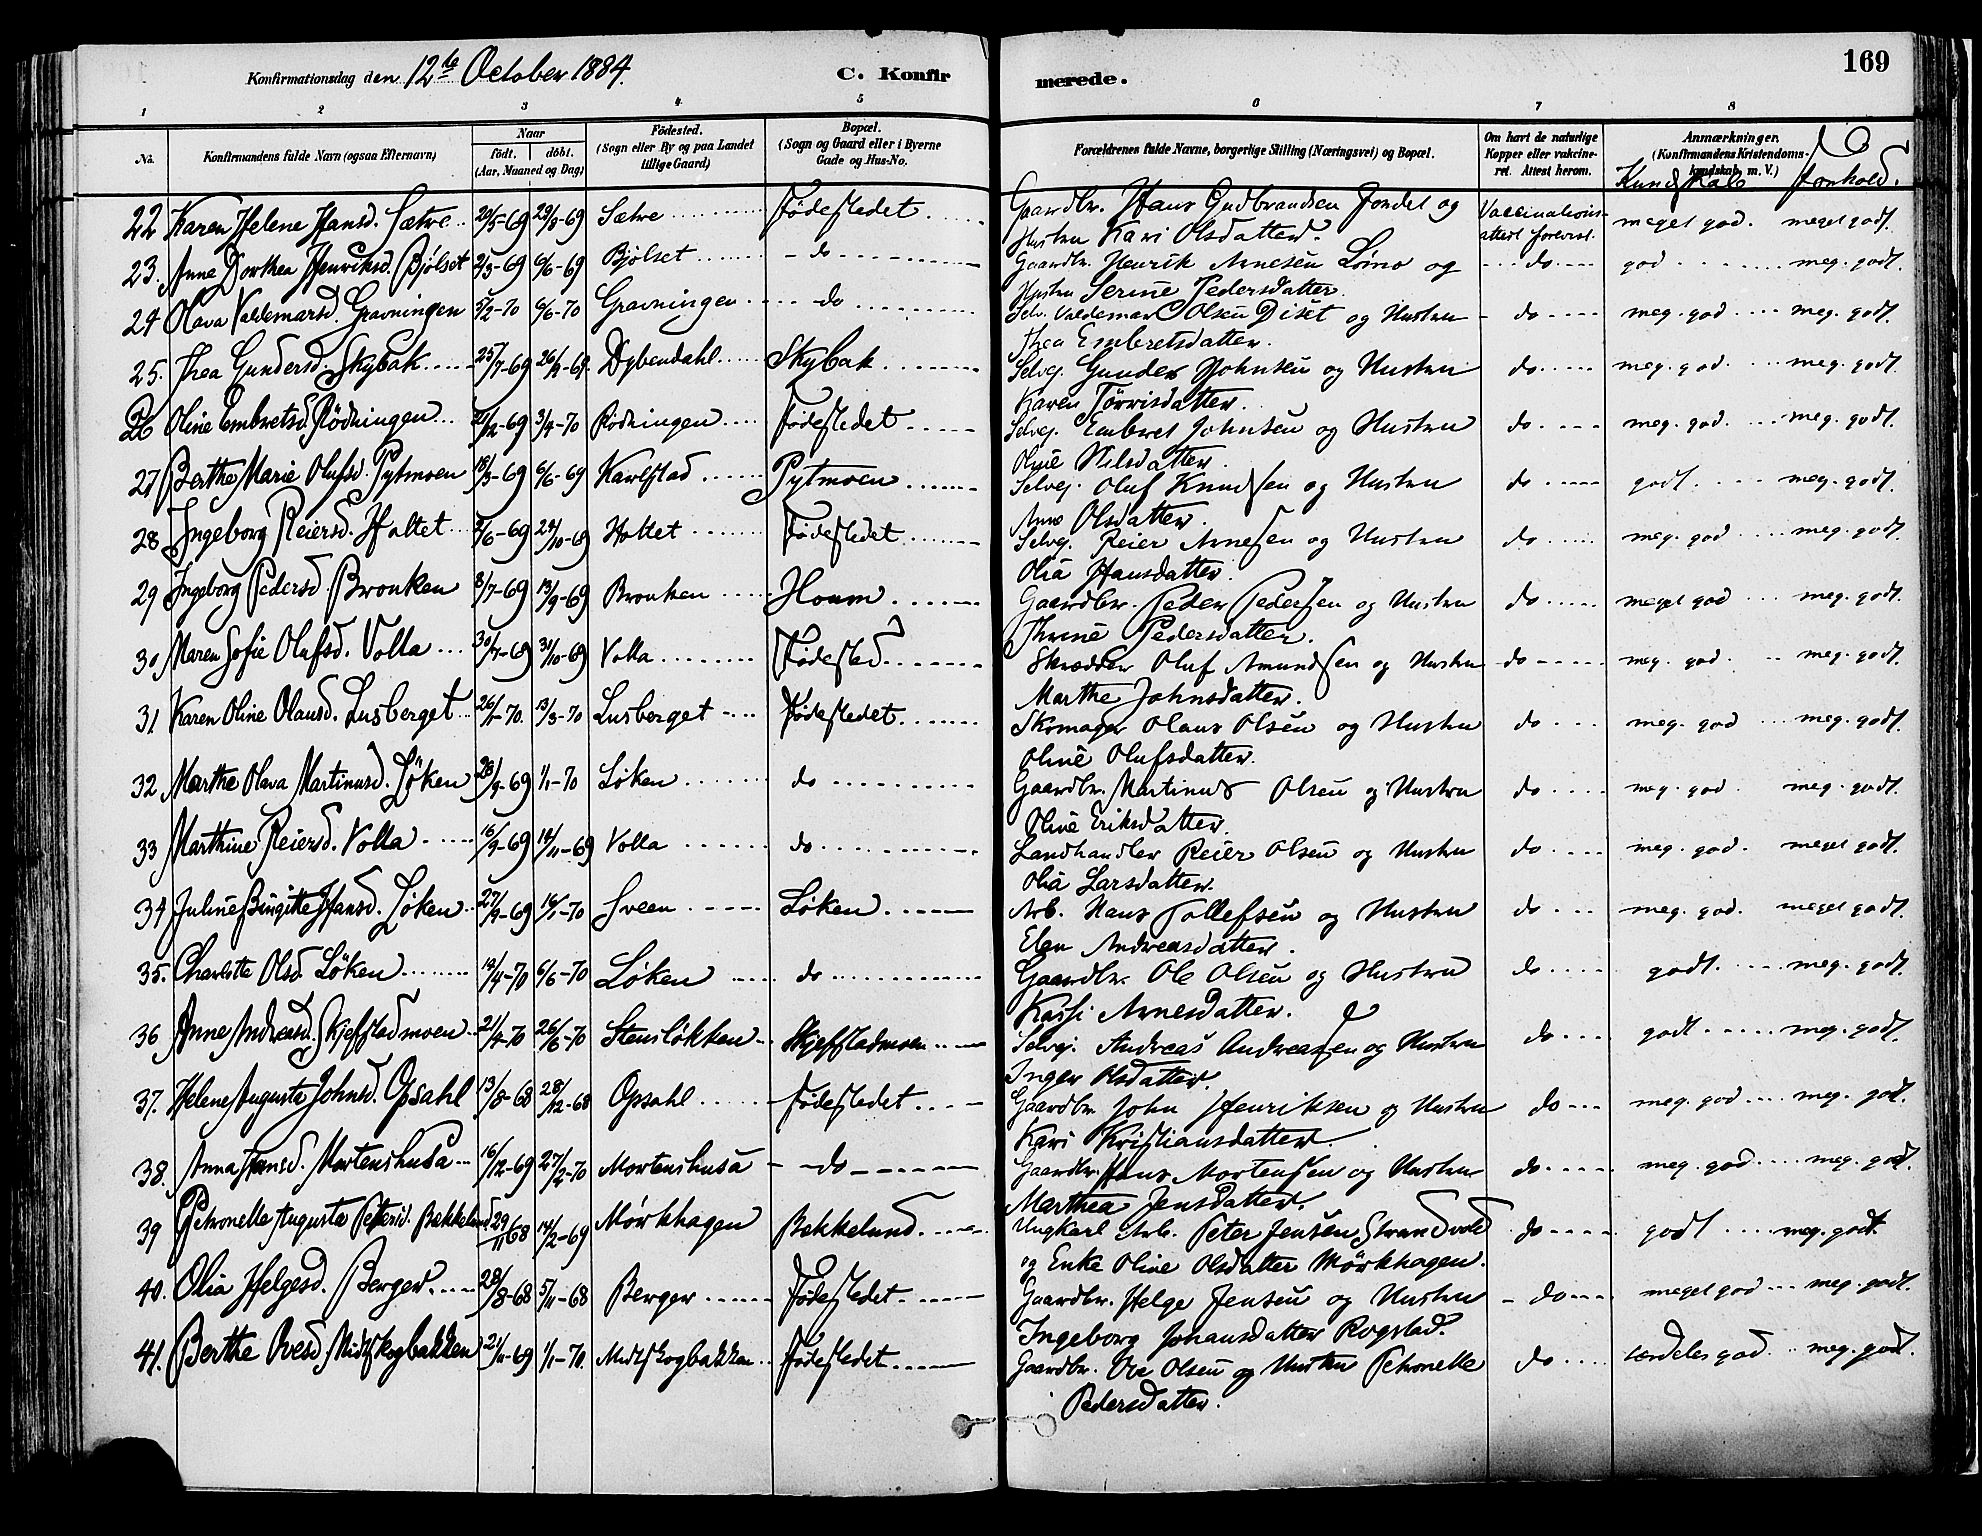 Konfirmationsdag den 12te October 1884. C. Konfirmerede. 169
1 2 3 4 5 6 7 8
No. Konfirmandens fulde Navn (ogsaa Efternavn) Naar födt. döbt. (Aar, Maaned og Dag) Födested. (Sogn eller By og paa Landet tillige Gaard) Bopæl. (Sogn og Gaard eller i Byerne Gade og Hus-No. Forældrenes fulde Navne, borgerlige Stilling (Næringsvei) og Bopæl. Om havt de naturlige Kopper eller vakcineret. Attest herom. Anmærkninger. (Konfirmandens Kristendomskundskab m. V.)
Kundskab Forhold.
22 Karen Helene Hansd. Sætre 20/5-69 29/8-69 Sætre Fødestedet Gaardbr. Hans Gudbrandsen Jordet og Vaccinations- meget god. meget godt.
Hustru Kari Olsdatter. attest forevist.
23. Anne Dorthea Henriksd. Bjølset 21/3-69 6/6-69 Bjølset do Gaardbr. Henrik Arnesen Lømo og do god meg. godt.
Hustru Serine Pedersdatter.
24 Olava Valdemarsd. Gravningen 5/2-70 6/6-70 Gravningen do Selv. Valdemar Olsen Diset og Hustru do meg. god meg. godt.
Thea Embretsdatter.
25. Thea Gundersd. Skybak 25/7-69 26/9-69. Dybendahl Skybak Selvej. Gunder Johnsen og Hustru do meg. god meg. godt.
Karen Törrisdatter.
26 Oline Embretsd. Rödningen 21/12-69 3/4-70 Rödningen Fødestedet Selvej. Embret Johnsen og Hustru do meg. god meg. godt.
Oline Nilsdatter.
27 Berthe Marie Olufsd. Pytmoen 18/3-69 6/6-69 Karlstad Pytmoen Selvej. Oluf Knudsen og Hustru do godt. meg. godt.
Anne Olsdatter.
28 Ingeborg Reiersd. Holtet 2/6-69 24/10-69 Holtet Fødestedet Selvej. Reier Arnesen og Hustru do meg. god meg. godt.
Olia Hansdatter.
29 Ingeborg Pedersd. Bronken 8/7-69 13/9-69 Bronken Houm Gaardbr. Peder Pedersen og Hustru do meget god meg. godt.
Thrine Pedersdatter.
30 Maren Sofie Olufsd. Volla 30/7-69 31/10-69 Volla Fødested Skrædder Oluf Amundsen og Hustru do meg. god. meg. godt.
Marthe Johnsdatter.
31 Karen Oline Olausd. Lusberget 26/1-70. 13/3-70 Lusberget Fødestedet Skomager Olaus Olsen og Hustru do meg. god meg. godt.
Oline Olufsdatter.
32 Marthe Olava Martinusd. Löken 28/9-69 1/1-70 Löken do Gaardbr. Martinus Olsen og Hustru do meg. god. meg. godt.
Oline Eriksdatter.
33 Marthine Reiersd. Volla 16/9-69 14/11-69 Volla do Landhandler Reier Olsen og Hustru do meg. god. meget godt.
Olia Larsdatter.
34 Juline Birgitte Hansd. Löken 27/9-69 16/1-70 Sveen Løken Arb. Hans Tollefsen og Hustru do meg. god. meget godt.
Elen Andreasdatter.
35. Charlotte Olsd. Löken 10/4-70 6/6-70 Löken do Gaardbr. Ole Olsen og Hustru do godt. meg. godt.
Karsi Arnesdatter.
36 Anne Andreasd. Skjefstadmoen 21/4-70 26/6-70 Stensløkken Skjefstadmoen Selvej. Andreas Andreassen og Hustru do godt meg. godt.
Inger Olsdatter.
37. Helene Augusta Johnsd. Opsahl 13/8-68 28/12-68 Opsahl Fødestedet Gaardbr. John Henriksen og Hustru do meg. god meg. godt.
Kari Kristiansdatter.
38. Anna Hansd. Mortenshusa 16/12-69 27/2-70 Mortenshusa do Gaardbr. Hans Mortensen og Hustru do meg. god meg. godt.
Marthea Jensdatter.
39 Petronelle Augusta Petersd. Bekkelund 29/11 68 14/2-69 Mörkhagen Bekkelund Ungkarl Arb. Peter Jensen Strandvold do godt meg. godt.
og Enke Oline Olsdatter Mörkhagen.
40. Olia Helgesd. Berger 28/8-68 5/11-68 Berger Fødestedet Gaardbr. Helge Jensen og Hustru do meget god meg. godt.
Ingeborg Johansdatter Rogstad.
41. Berthe Ovesd. Midtskogbakken 2/11-69 1/1-70. Midtskogbakken Fødestedet Gaardbr. Ove Olsen og Hustru Petronelle do særdeles god meg. godt.
Pedersdatter.